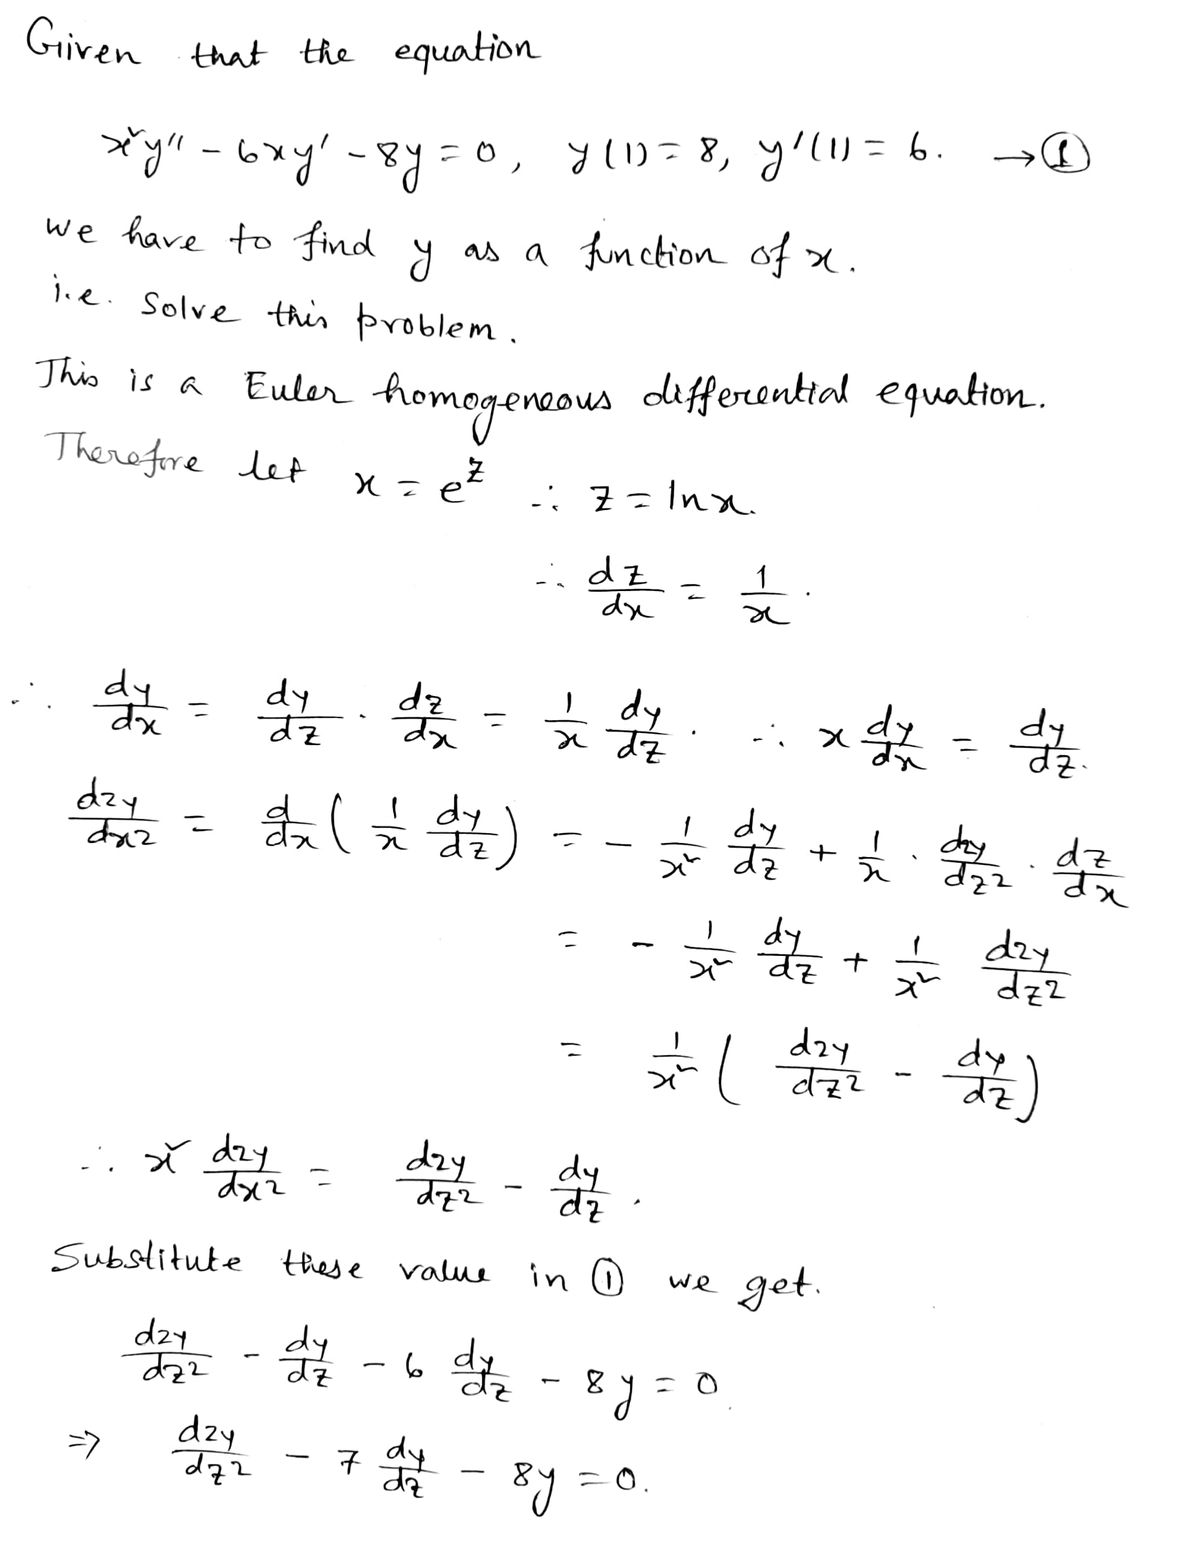 Given that the equation
x²y'' - 6xy' - 8y = 0, y(1) = 8, y'(1) = 6. → ①
we have to find y as a function of x.
i.e. Solve this problem.
This is a Euler homogeneous differential equation.
Therefore let x = e^z ∴ z = ln x.
∴ dz/dx = 1/x.
∴ dy/dx = dy/dz · dz/dx = 1/x dy/dz. ∴ x dy/dx = dy/dz.
d2y/dx2 = d/dx (1/x dy/dz) = - 1/x² dy/dz + 1/x · d2y/dz2 · dz/dx
= - 1/x² dy/dz + 1/x² d2y/dz2
= 1/x² (d2y/dz2 - dy/dz)
∴ x² d2y/dx2 = d2y/dz2 - dy/dz.
Substitute these value in ① we get.
d2y/dz2 - dy/dz - 6 dy/dz - 8y = 0
⇒ d2y/dz2 - 7 dy/dz - 8y = 0.